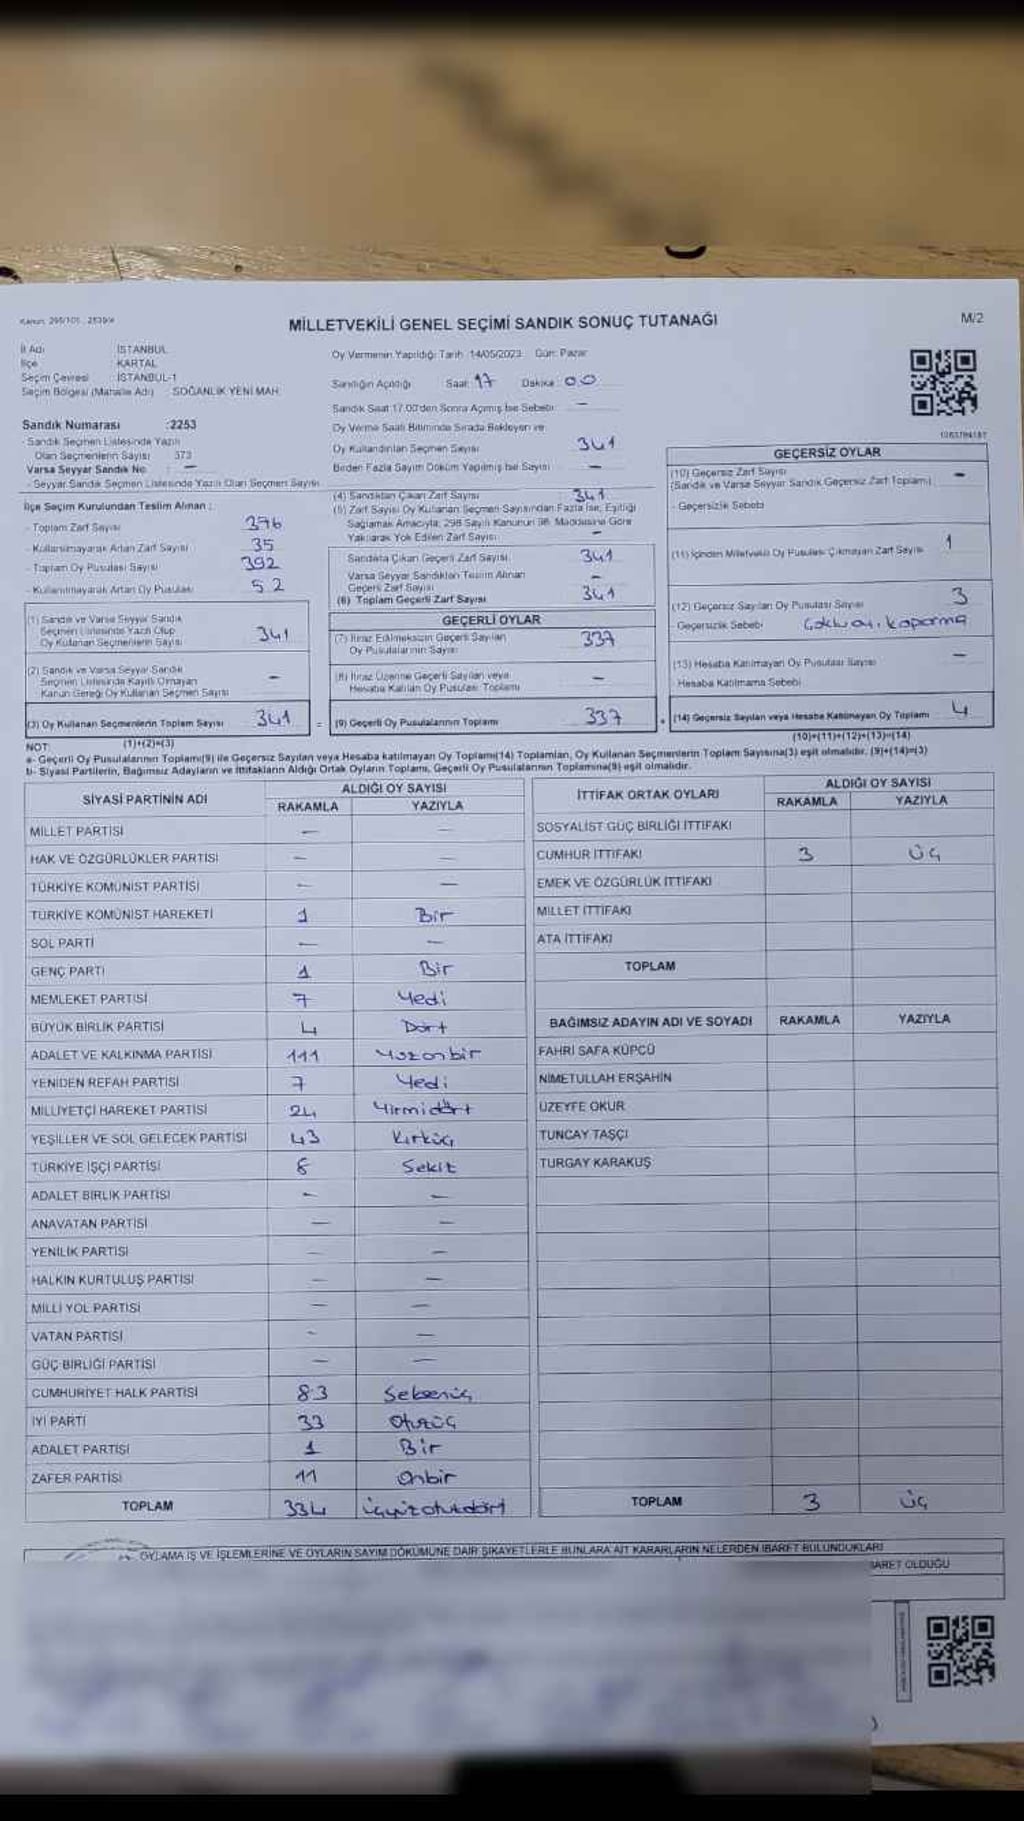 MİLLETVEKİLİ GENEL SEÇİMİ SANDIK SONUÇ TUTANAĞI
M/2
İl Adı : İSTANBUL
İlçe : KARTAL
Seçim Çevresi : İSTANBUL-1
Seçim Bölgesi (Mahalle Adı) : SOĞANLIK YENİ MAH.
Sandık Numarası :2253
- Sandık Seçmen Listesinde Yazılı
Olan Seçmenlerin Sayısı 373
Varsa Seyyar Sandık No : -
- Seyyar Sandık Seçmen Listesinde Yazılı Olan Seçmen Sayısı
İlçe Seçim Kurulundan Teslim Alınan :
- Toplam Zarf Sayısı 376
- Kullanılmayarak Artan Zarf Sayısı 35
- Toplam Oy Pusulası Sayısı 392
- Kullanılmayarak Artan Oy Pusulası 52
(1) Sandık ve Varsa Seyyar Sandık
Seçmen Listesinde Yazılı Olup
Oy Kullanan Seçmenlerin Sayısı 341
(2) Sandık ve Varsa Seyyar Sandık
Seçmen Listesinde Kayıtlı Olmayan
Kanun Gereği Oy Kullanan Seçmen Sayısı -
(3) Oy Kullanan Seçmenlerin Toplam Sayısı 341
(1)+(2)=(3)
Oy Vermenin Yapıldığı Tarih: 14/05/2023 Gün: Pazar
Sandığın Açıldığı Saat: 17 Dakika: 00
Sandık Saat 17.00'den Sonra Açılmış İse Sebebi: -
Oy Verme Saati Bitiminde Sırada Bekleyen ve
Oy Kullandırılan Seçmen Sayısı 341
Birden Fazla Sayım Döküm Yapılmış İse Sayısı -
(4) Sandıktan Çıkan Zarf Sayısı 341
(5) Zarf Sayısı Oy Kullanan Seçmen Sayısından Fazla İse, Eşitliği
Sağlamak Amacıyla; 298 Sayılı Kanunun 98. Maddesine Göre
Yakılarak Yok Edilen Zarf Sayısı -
Sandıkta Çıkan Geçerli Zarf Sayısı 341
Varsa Seyyar Sandıktan Teslim Alınan
Geçerli Zarf Sayısı -
(6) Toplam Geçerli Zarf Sayısı 341
GEÇERLİ OYLAR
(7) İtiraz Edilmeksizin Geçerli Sayılan
Oy Pusulalarının Sayısı 337
(8) İtiraz Üzerine Geçerli Sayılan veya
Hesaba Katılan Oy Pusulası Toplamı -
= (9) Geçerli Oy Pusulalarının Toplamı 337
GEÇERSİZ OYLAR
(10) Geçersiz Zarf Sayısı -
(Sandık ve Varsa Seyyar Sandık Geçersiz Zarf Toplamı)
- Geçersizlik Sebebi
(11) İçinden Milletvekili Oy Pusulası Çıkmayan Zarf Sayısı 1
(12) Geçersiz Sayılan Oy Pusulası Sayısı 3
- Geçersizlik Sebebi
(13) Hesaba Katılmayan Oy Pusulası Sayısı -
- Hesaba Katılmama Sebebi
+ (14) Geçersiz Sayılan veya Hesaba Katılmayan Oy Toplamı 4
(10)+(11)+(12)+(13)=(14)
NOT:
a- Geçerli Oy Pusulalarının Toplam(9) ile Geçersiz Sayılan veya Hesaba katılmayan Oy Toplamı(14) Toplamları, Oy Kullanan Seçmenlerin Toplam Sayısına(3) eşit olmalıdır. (9)+(14)=(3)
b- Siyasi Partilerin, Bağımsız Adayların ve İttifakların Aldığı Ortak Oyların Toplamı, Geçerli Oy Pusulalarının Toplamına(9) eşit olmalıdır.
SİYASİ PARTİNİN ADI ALDIĞI OY SAYISI
RAKAMLA YAZIYLA
MİLLET PARTİSİ - -
HAK VE ÖZGÜRLÜKLER PARTİSİ - -
TÜRKİYE KOMÜNİST PARTİSİ - -
TÜRKİYE KOMÜNİST HAREKETİ 1 Bir
SOL PARTİ - -
GENÇ PARTİ 1 Bir
MEMLEKET PARTİSİ 7 Yedi
BÜYÜK BİRLİK PARTİSİ 4 Dört
ADALET VE KALKINMA PARTİSİ 111 Yüzonbir
YENİDEN REFAH PARTİSİ 7 Yedi
MİLLİYETÇİ HAREKET PARTİSİ 24 Yirmidört
YEŞİLLER VE SOL GELECEK PARTİSİ 43 Kırküç
TÜRKİYE İŞÇİ PARTİSİ 8 Sekiz
ADALET BİRLİK PARTİSİ - -
ANAVATAN PARTİSİ - -
YENİLİK PARTİSİ - -
HALKIN KURTULUŞ PARTİSİ - -
MİLLİ YOL PARTİSİ - -
VATAN PARTİSİ - -
GÜÇ BİRLİĞİ PARTİSİ - -
CUMHURİYET HALK PARTİSİ 83 Seksenüç
İYİ PARTİ 33 Otuzüç
ADALET PARTİSİ 1 Bir
ZAFER PARTİSİ 11 Onbir
TOPLAM 334 Üçyüzotuzdört
İTTİFAK ORTAK OYLARI ALDIĞI OY SAYISI
RAKAMLA YAZIYLA
SOSYALİST GÜÇ BİRLİĞİ İTTİFAKI
CUMHUR İTTİFAKI 3 üç
EMEK VE ÖZGÜRLÜK İTTİFAKI
MİLLET İTTİFAKI
ATA İTTİFAKI
TOPLAM
BAĞIMSIZ ADAYIN ADI VE SOYADI RAKAMLA YAZIYLA
FAHRİ SAFA KÜPCÜ
NİMETULLAH ERŞAHİN
ÜZEYFE OKUR
TUNCAY TAŞÇI
TURGAY KARAKUŞ
TOPLAM 3 üç
OYLAMA İŞ VE İŞLEMLERİNE VE OYLARIN SAYIM DÖKÜMÜNE DAİR ŞİKAYETLERLE BUNLARA AİT KARARLARIN NELERDEN İBARET BULUNDUKLARI
İBARET OLDUĞU